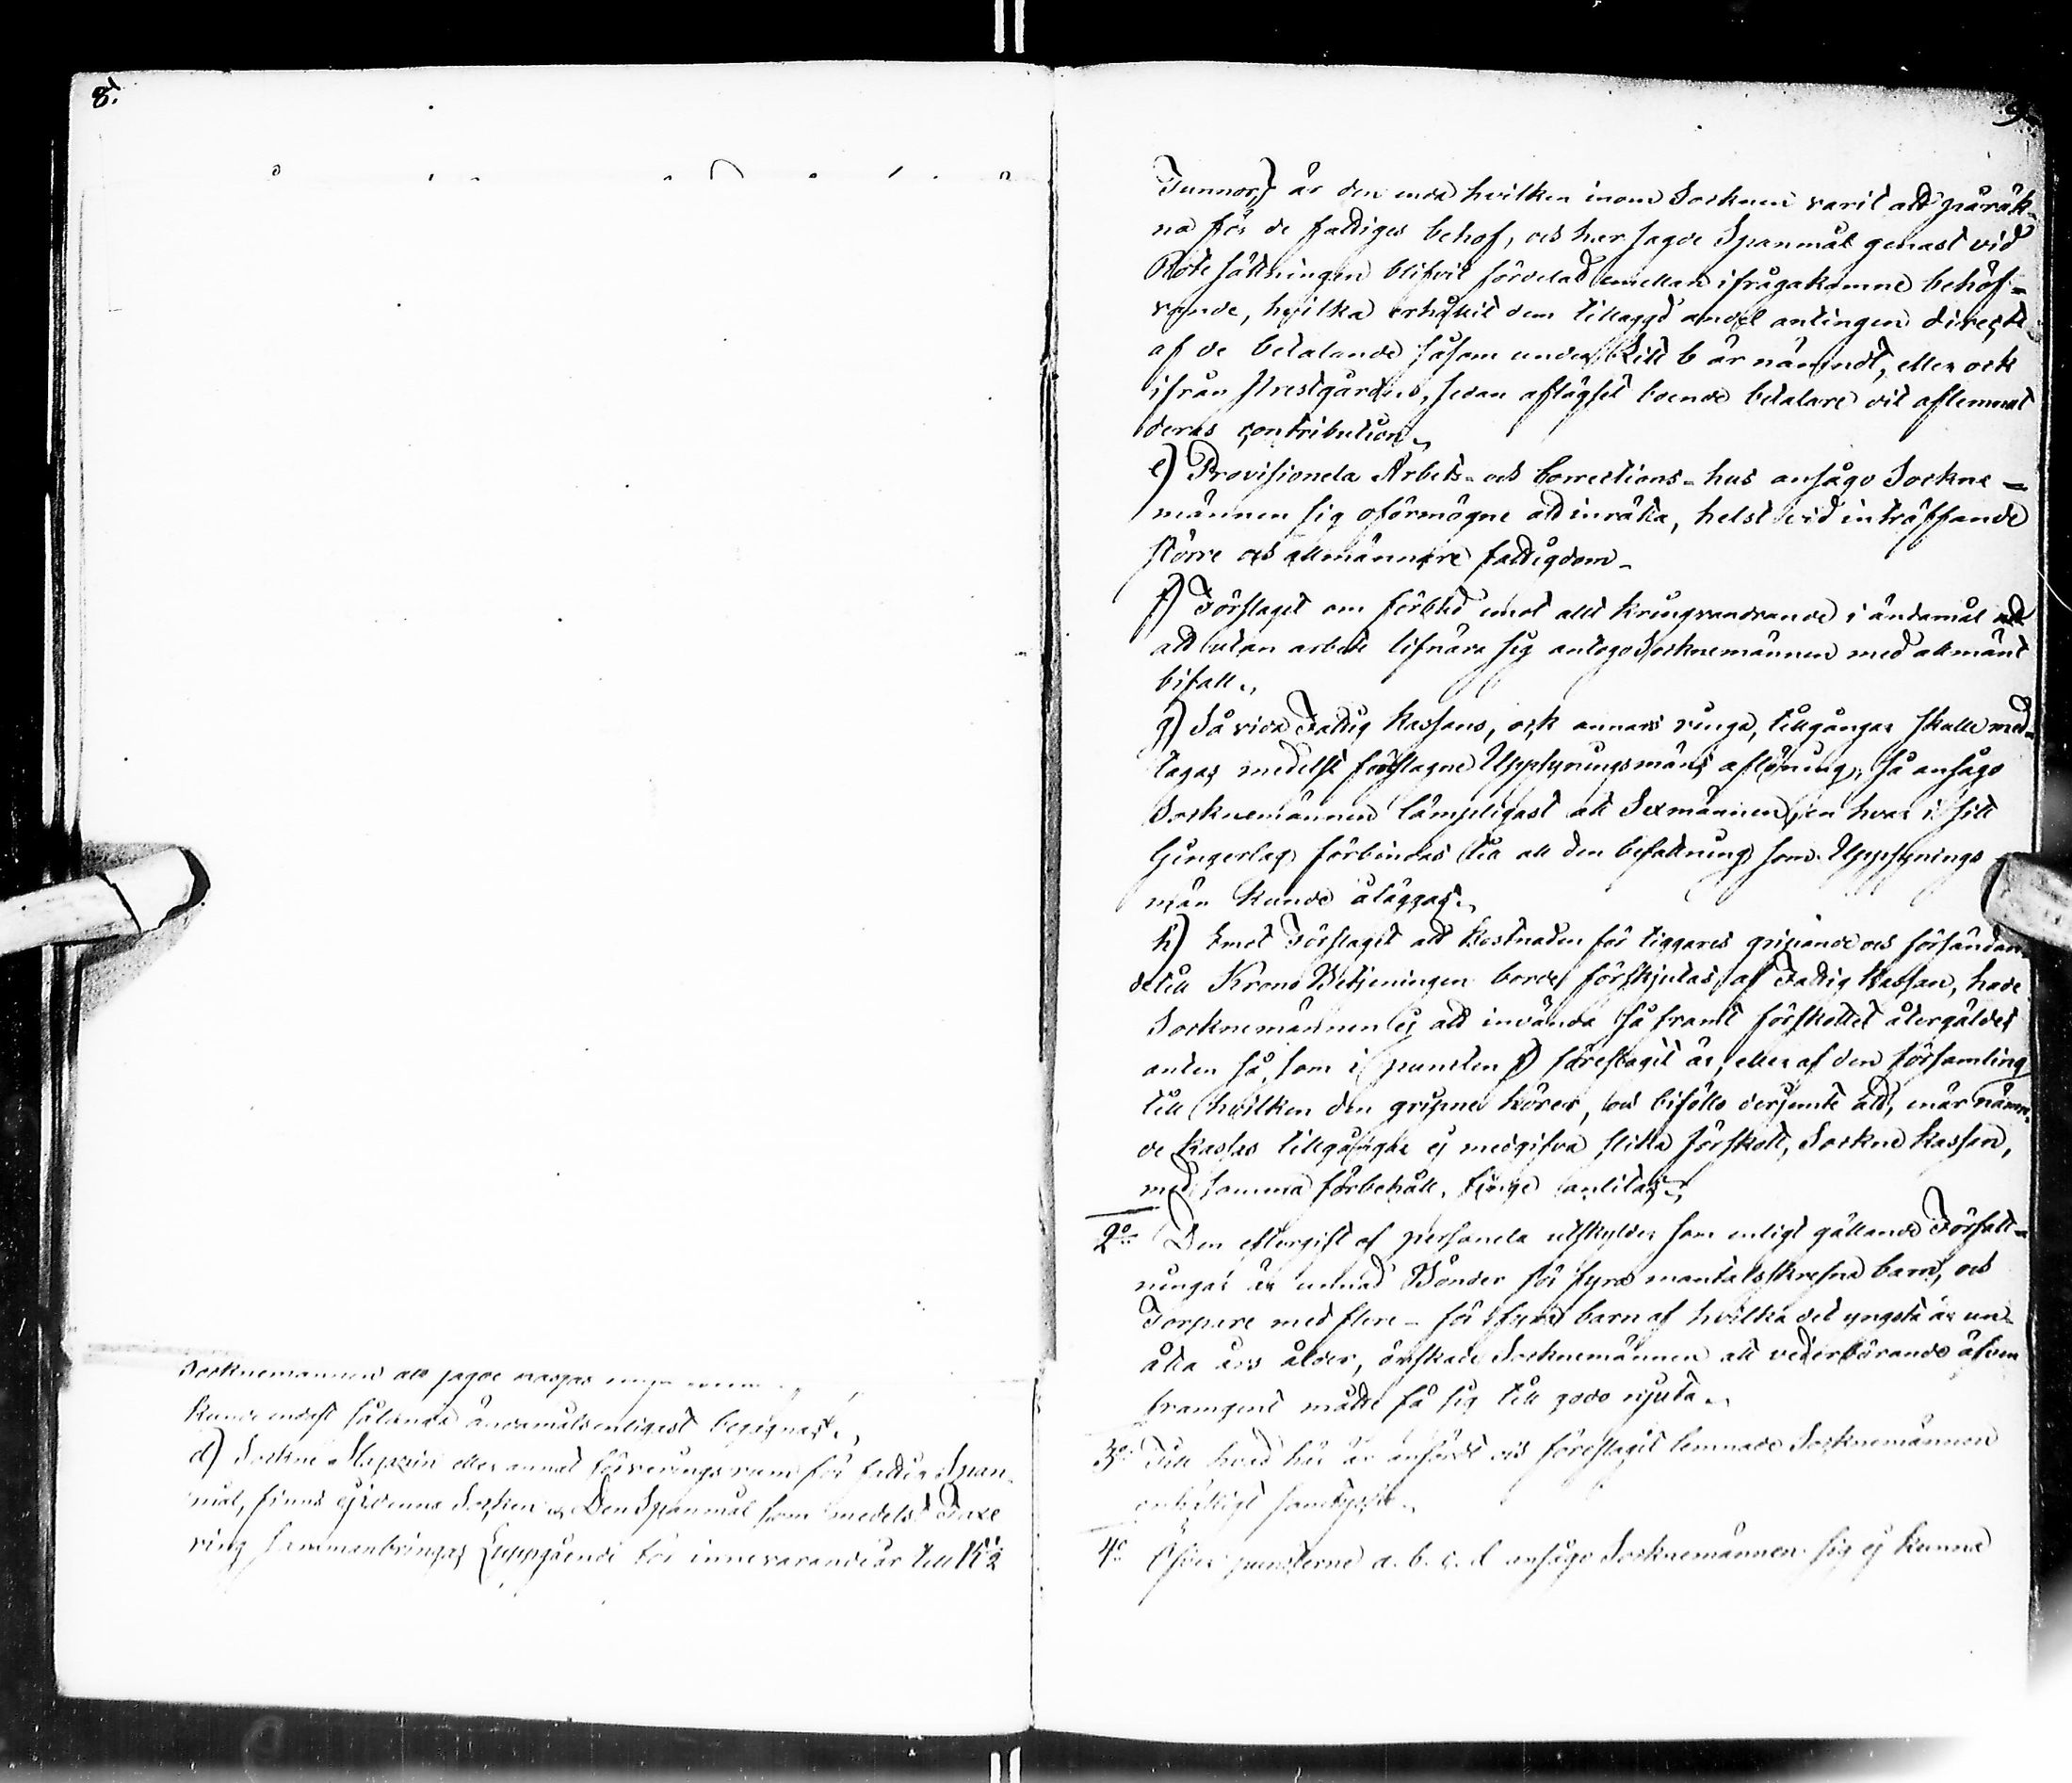 8.
Socknemännen att sagde
kunde endast sålunda ändamålsenligast begagnas.
d) Sockne Magazin eller annat förvaringsrum för fattig Span-
mål, finns ej i denna Socken. Den Spanmål som medelst Taxe
ring sammanbringas (uppgående för innevarande år till 15½
9.
Tunnor) är den enda hvilken inom Socknen varit att påräk-
na för de fattiges behof, och har sagde Spanmål genast vid
Rotesättningen blifvit fördelad emellan ifrågakomne behöf-
vande, hvilka erhållit dem tillaggd andel antingen directe
af de betalande såsom under Litt b är nämndt, eller ock
ifrån Prestgården, sedan aflägset boende betalare dit aflemnat
deras contribution.
e) Provisionela Arbets- och Corrections-hus ansågo Sockne-
männen sig oförmögne att inrätta, helst vid inträffande
större och allmännare fattigdom.
f) Förslaget om förbud emot allt kringvandrande i ändamål att
att utan arbete lifnära sig antogo Socknemännen med allmänt
bifall.
g) Så vida Fattig Kassans, ock annars ringa, tillgångar skulle med-
tagas medelst föreslagne Uppsyningsmäns aflöning, så ansågo
Socknemännen lämpligast att Sexmännen, en hvar i sitt
Gingerlag förbindas till all den befattning som Uppsynings
män kunde åläggas.
h) Emot Förslaget att kostnaden för tiggares gripande och försändan-
de till Krono Betjeningen borde förskjutas af Fattig Kassan, hade
Socknemännen ej att invända så framt förskottet återgäldes
anten så, som i puncten f) föreslagit är, eller af den församling
till hvilken den gripne hörer, och biföllo derjemte att, enär nämn-
de Kassas tillgångar ej medgifva slika förskott, Sockne Kassan,
med samma förbehåll, finge anlitas.
2o Den eftergift af personela utskylder som enligt gällande Författ-
ningar är unnad Bönder för fyra mantalsskrefne barn, och
Torpare med flere - för fyra barn af hvilka det yngsta är un-
åtta års ålder, önskade Socknemännen att vederbörande äfven
framgent måtte få sig till godo njuta.
3o Till hvad här är anfördt och föreslagit lemnade Socknemännen
enhälligt samtycke.
4o Öfver puncterne a. b. c. d ansågo Socknemännen sig ej kunna